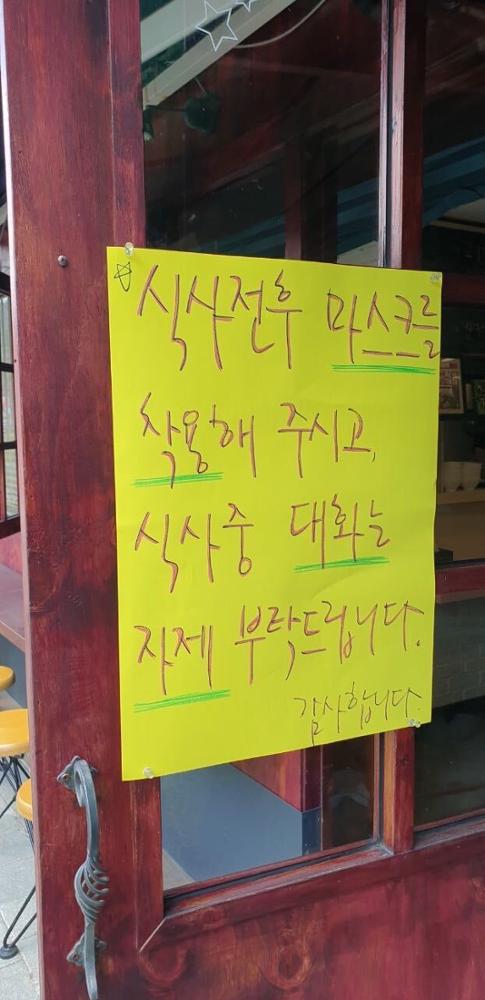 식사전후 마스크를
착용해 주시고,
식사중 대화는
자제 부탁드립니다.
감사합니다.